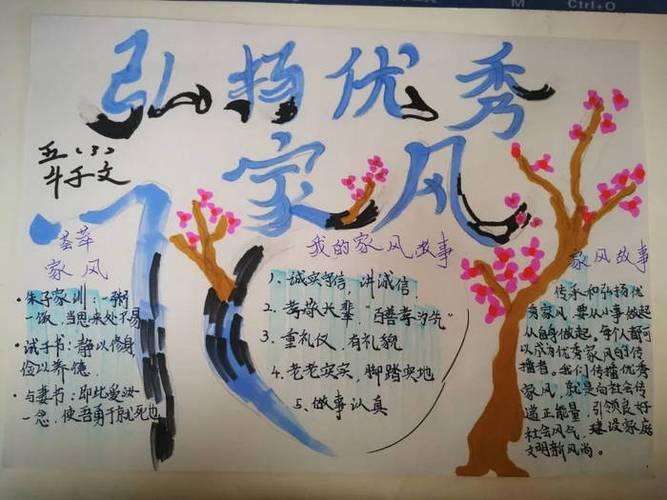 M Ctrl+O
弘扬优秀
家风
五（3）
子文
荟萃
家风
· 朱子家训：一粥
一饭，当思来处不易
· 诫子书：静以修身
俭以养德
· 与妻书：即此爱汝
一念，使吾勇于就死也
我的家风故事
1、诚实守信，讲诚信
2、孝敬长辈，百善孝为先”
3、重礼仪，有礼貌
4、老老实实，脚踏实地
5、做事认真
家风故事
传承和弘扬优
秀家风，要从小事做起
从自身做起，每个人都可
以成为优秀家风的传
播者。我们传播优秀
家风，就是向社会传
递正能量，引领良好
社会风气，建设家庭
文明新风尚。